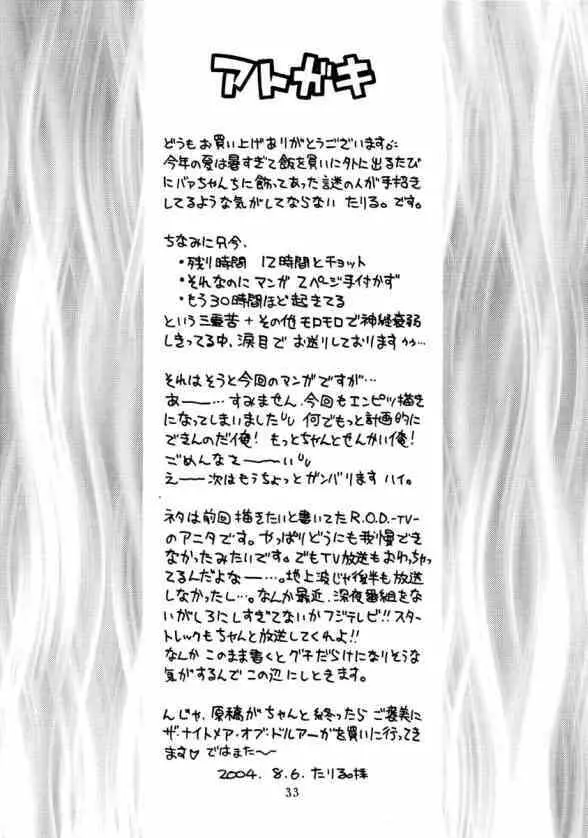 アトガキ
どうもお買い上げありがとうございます♪
今年の夏は暑すぎて飯を買いに外に出るたび
にバァちゃんちに飾ってあった謎の人が手招き
してるような気がしてならない たりる。です。
ちなみに只今、
・残り時間 12時間とチョット
・それなのに マンガ 2ページ手付かず
・もう30時間ほど起きてる
という三重苦+その他モロモロで神経衰弱
しきってる中、涙目で お送りしております…
それはそうと今回のマンガですが…
あー――…すみません、今回もエンピツ描き
になってしまいました 何でもっと計画的に
できんのだ俺! もっとちゃんとせんかい俺!
ごめんなさ―――い
え―― 次はもうちょっとガンバリます ハイ。
ネタは前回描きたいと書いてたR.O.D.-TV-
のアニタです。やっぱりどうにも我慢でき
なかったみたいです。でもTV放送もおわっちゃ
てるんだよな――…。地上波じゃ後半も放送
しなかったし…。なんか最近、深夜番組をな
いがしろにしすぎてないかフジテレビ!!スター
トレックもちゃんと放送してくれよ!!
なんか このまま書くと グチだらけになりそうな
気がするんで この辺にしときます。
んじゃ、原稿がちゃんと終ったら ご褒美に
ザ・ナイトメア・オブ・ドルアーガを買いに行ってき
ます♡ ではまた〜〜
2004. 8.6. たりる。様
33